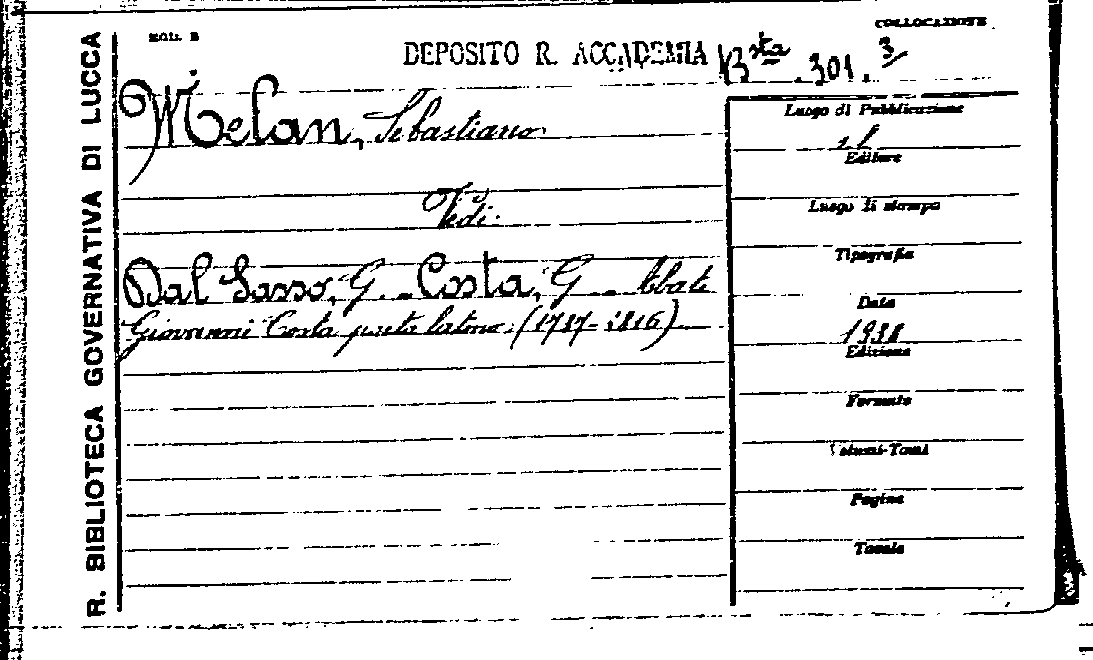 MOD. B
COLLOCAZIONE
DEPOSITO R. ACCADEMIA
Bsta. 301. 3
R. BIBLIOTECA GOVERNATIVA DI LUCCA
Melan, Sebastiano
Vedi:
Dal Sasso, G. - Costa, G - Abbate
Giovanni Costa poeta latino. (1737-1816)
Luogo di Pubblicazione
s l
Editore
Luogo di stampa
Tipografia
Data
1938
Edizione
Formato
Volumi-Tomi
Pagine
Tavole